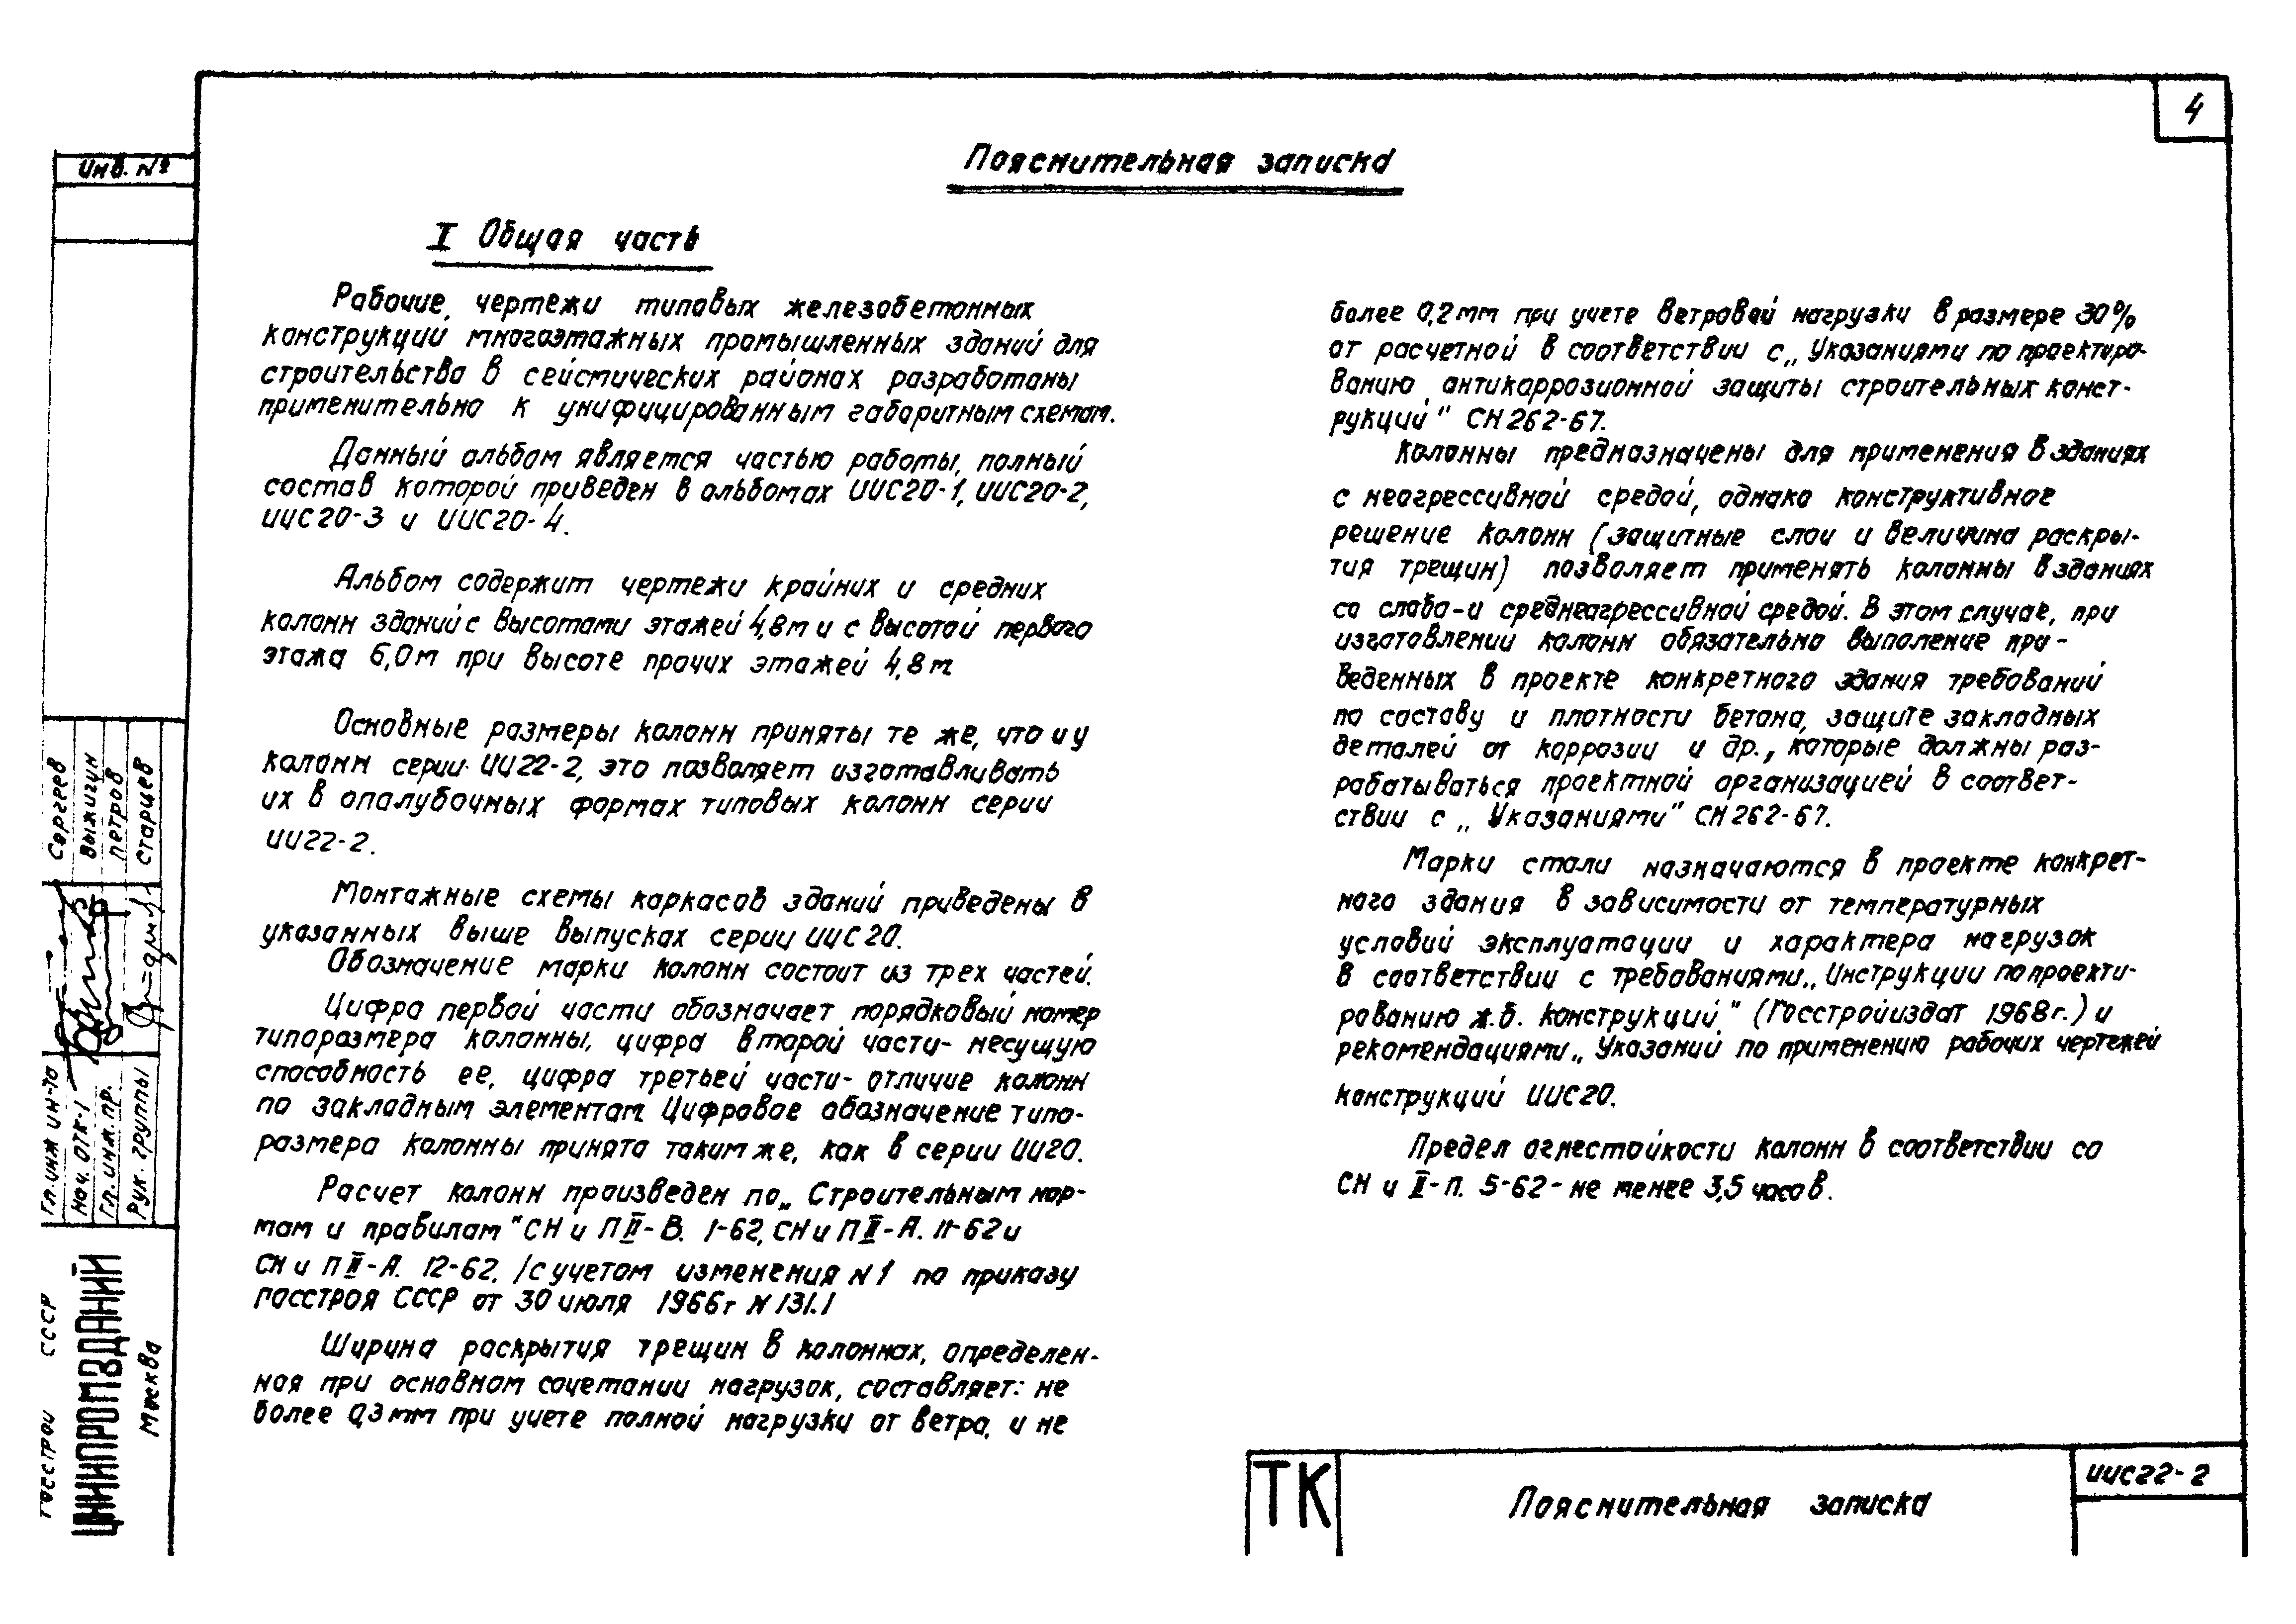 4
Пояснительная записка
I Общая часть
Рабочие чертежи типовых железобетонных
конструкций многоэтажных промышленных зданий для
строительства в сейсмических районах разработаны
применительно к унифицированным габаритным схемам.
Данный альбом является частью работы, полный
состав которой приведен в альбомах ИИС20-1, ИИС20-2,
ИИС20-3 и ИИС20-4.
Альбом содержит чертежи крайних и средних
колонн зданий с высотами этажей 4,8м и с высотой первого
этажа 6,0м при высоте прочих этажей 4,8м.
Основные размеры колонн приняты те же, что и у
колонн серии ИИ22-2, это позволяет изготавливать
их в опалубочных формах типовых колонн серии
ИИ22-2.
Монтажные схемы каркасов зданий приведены в
указанных выше выпусках серии ИИС20.
Обозначение марки колонн состоит из трех частей.
Цифра первой части обозначает порядковый номер
типоразмера колонны, цифра второй части- несущую
способность ее, цифра третьей части- отличие колонн
по закладным элементам. Цифровое обозначение типо-
размера колонны принято таким же, как в серии ИИ20.
Расчет колонн произведен по „Строительным нор-
мам и правилам" СН и П II-В. 1-62, СН и П II-А. 11-62 и
СН и П II-А. 12-62. /с учетом изменения N1 по приказу
Госстроя СССР от 30 июля 1966г N131./
Ширина раскрытия трещин в колоннах, определен-
ная при основном сочетании нагрузок, составляет: не
более 0,3мм при учете полной нагрузки от ветра, и не
более 0,2мм при учете ветровой нагрузки в размере 30%
от расчетной в соответствии с „Указаниями по проектиро-
ванию антикоррозионной защиты строительных конст-
рукций" СН 262-67.
Колонны предназначены для применения в зданиях
с неагрессивной средой, однако конструктивное
решение колонн (защитные слои и величина раскры-
тия трещин) позволяет применять колонны в зданиях
со слабо-и среднеагрессивной средой. В этом случае, при
изготовлении колонн обязательно выполение при-
веденных в проекте конкретного здания требований
по составу и плотности бетона, защите закладных
деталей от коррозии и др., которые должны раз-
рабатываться проектной организацией в соответ-
ствии с „Указаниями" СН 262-67.
Марки стали назначаются в проекте конкрет-
ного здания в зависимости от температурных
условий эксплуатации и характера нагрузок
в соответствии с требованиями „Инструкции по проекти-
рованию ж.б. конструкций" (Госстройиздат 1968г.) и
рекомендациями „Указаний по применению рабочих чертежей
конструкций ИИС20.
Предел огнестойкости колонн в соответствии со
СН и II-П. 5-62- не менее 3,5 часов.
Инв. №
Гл. инж ин-та Сергеев
Нач. ОТК-1 Выжигин
Гл. инж. пр. Петров
Рук. группы Старцев
Госстрой СССР
ЦНИИПРОМЗДАНИЙ
Москва
ТК
Пояснительная записка
ИИС22-2